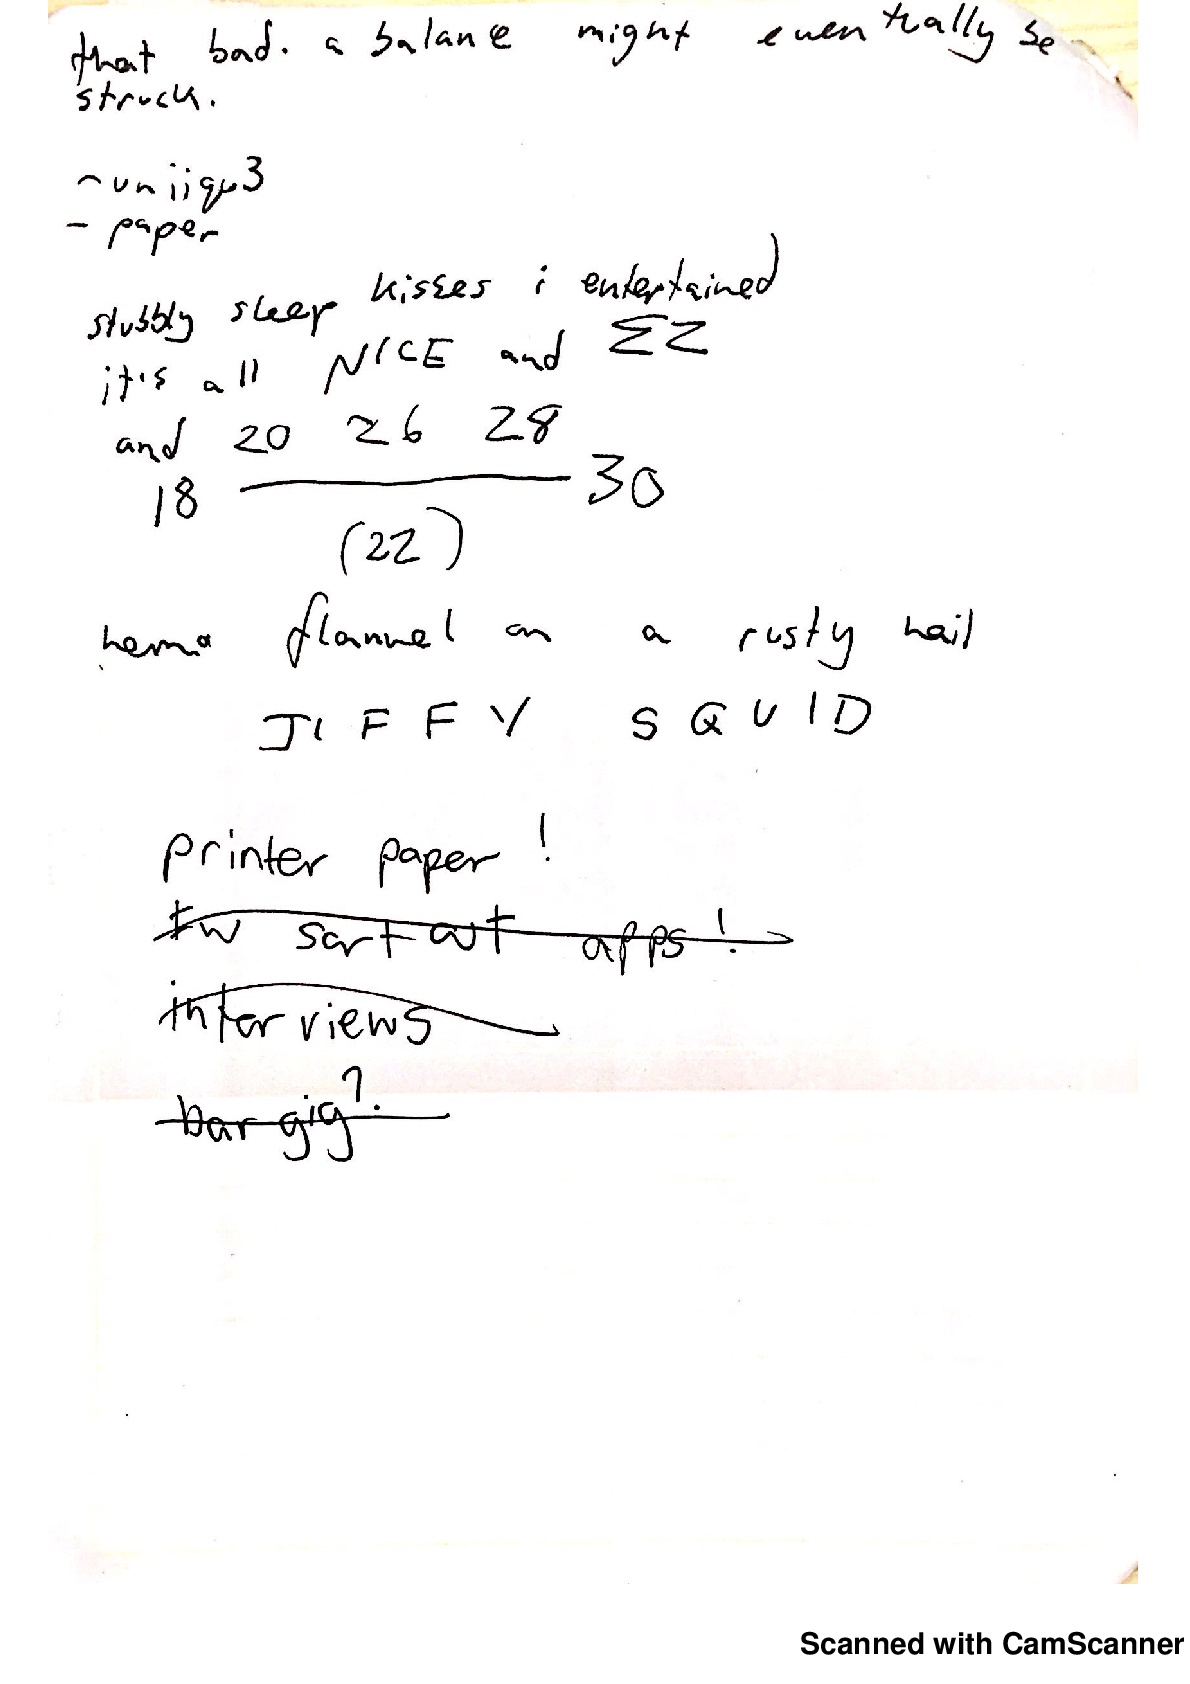 that bad. a balance might eventually be
struck.
~ uniique3
- paper
stubbly sleep kisses i entertained
it's all NICE and EZ
and 20 26 28
18 30
(22)
flannel on a rusty nail
JIFFY SQUID
printer paper!
apps!
interviews
bar gig?
Scanned with CamScanner